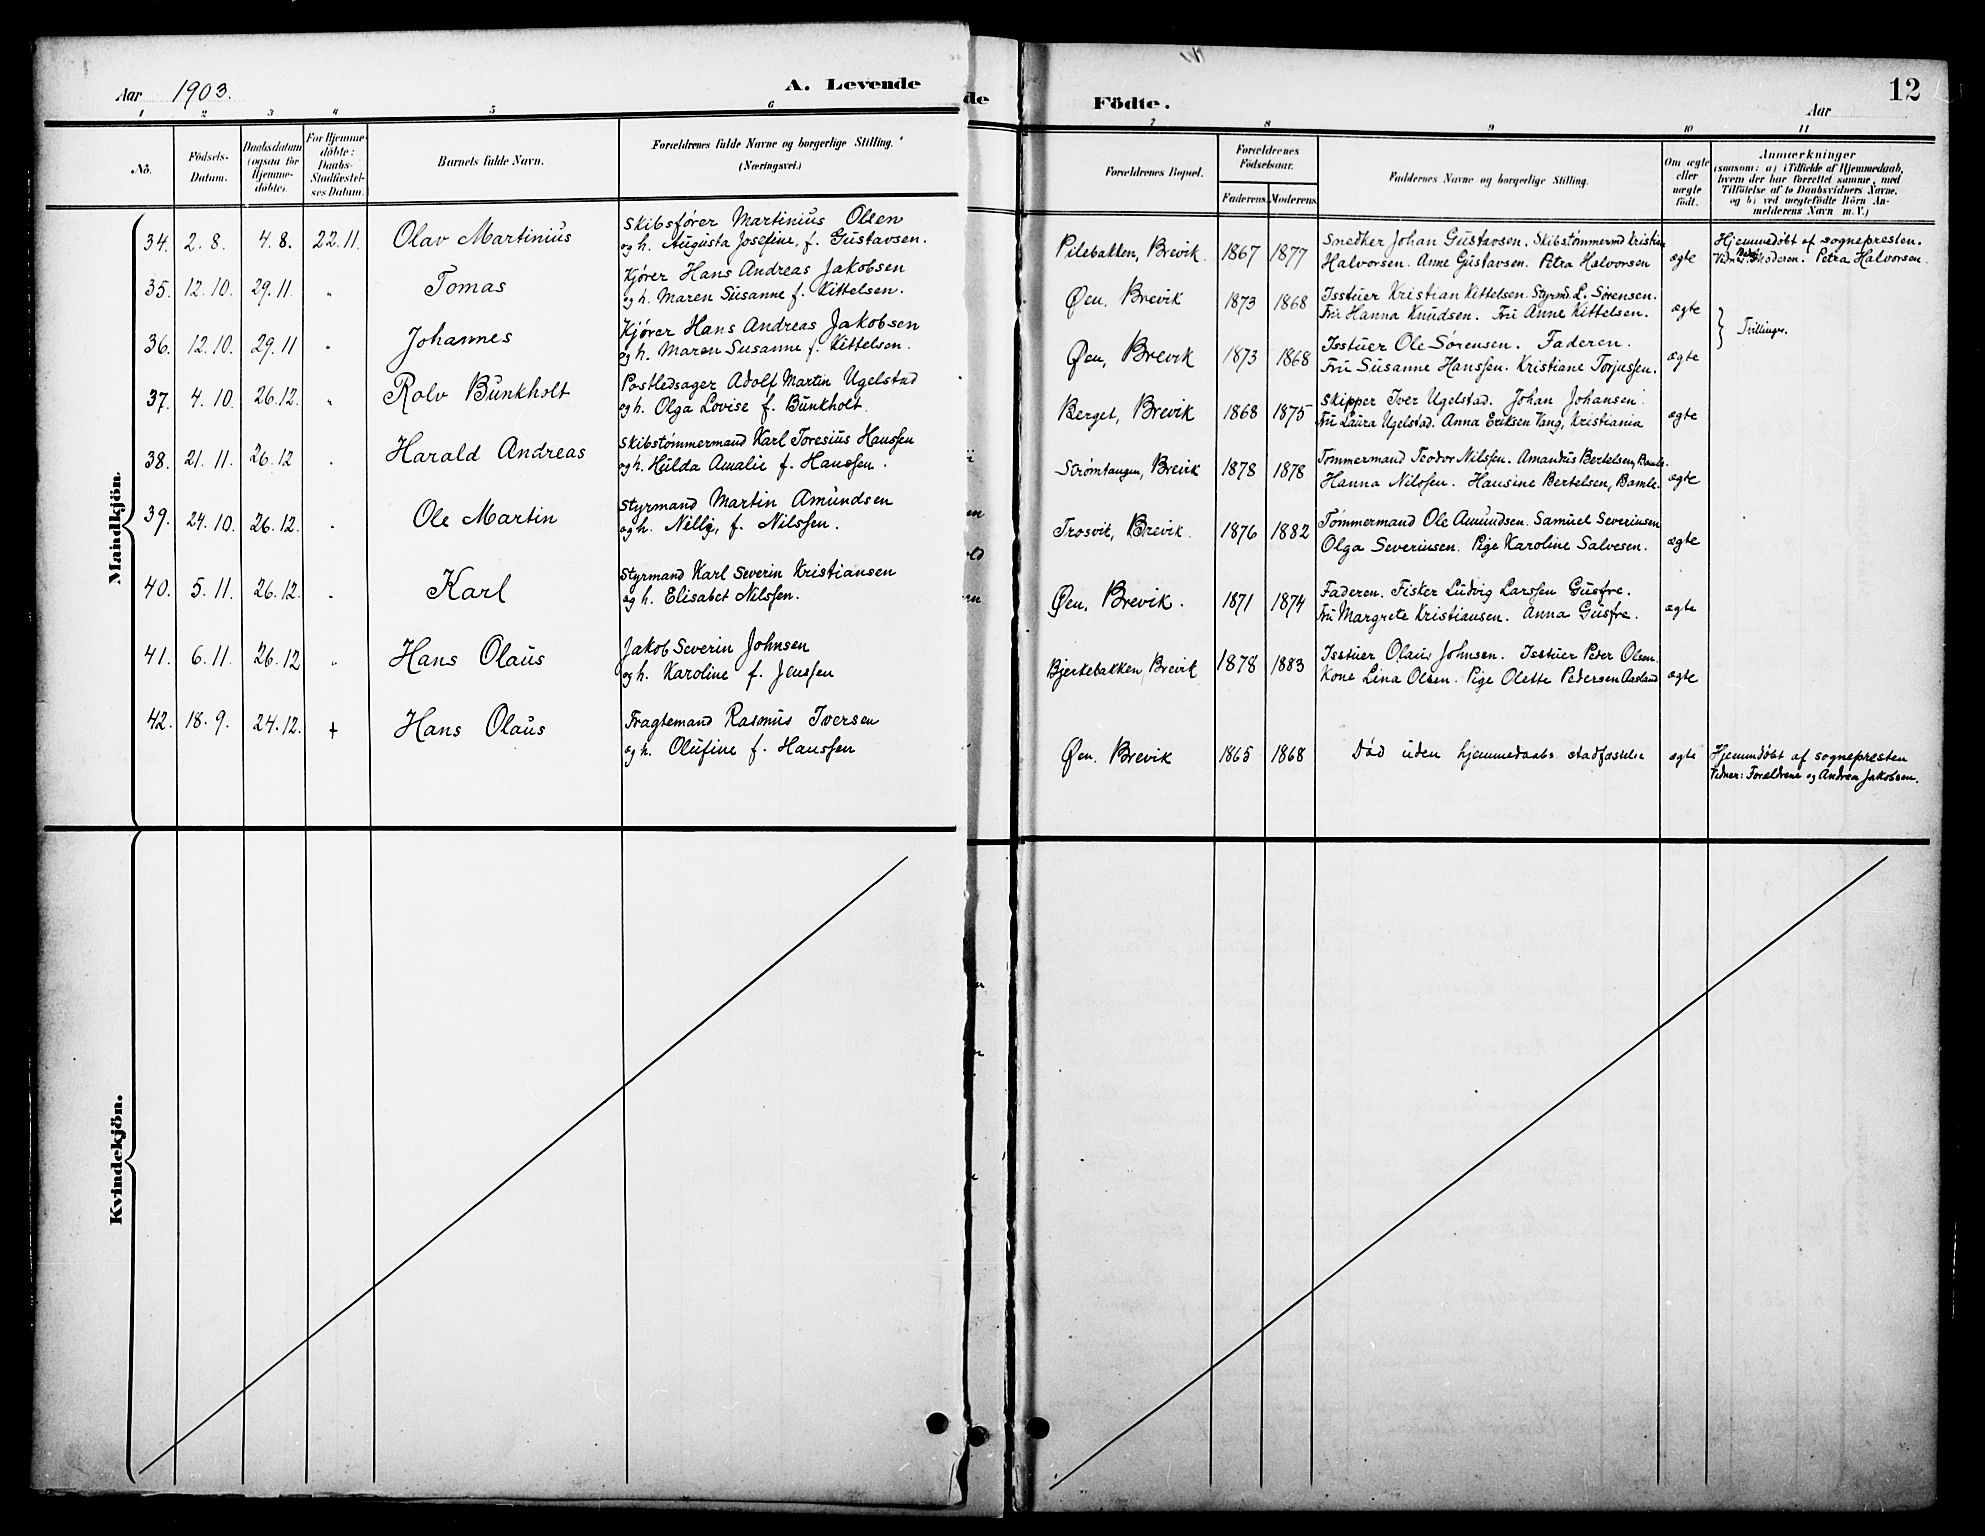 Aar 1903.
A. Levende
1 2 3 4 5 6
No.
Födsels-
Datum.
Daabsdatum
(ogsaa for
Hjemme-
döbte).
For Hjemme-
döbte:
Daabs-
Stadfæstel-
ses Datum.
Barnets fulde Navn.
Forældrenes fulde Navne og borgerlige Stilling.
(Næringsvei.)
Mandkjön.
34. 2. 8. 4. 8. 22. 11. Olav Martinius Skibsfører Martinius Olsen
og h. Augusta Josefine, f. Gustavsen.
35. 12. 10. 29. 11. " Tomas Kjører Hans Andreas Jakobsen
og h. Maren Susanne f. Kittelsen.
36. 12. 10. 29. 11 " Johannes Kjører Hans Andreas Jakobsen
og h. Maren Susanne f. Kittelsen.
37. 4. 10. 26. 12. " Rolv Bunkholt Postledsager Adolf Martin Ugelstad
og h. Olga Lovise f. Bunkholt.
38. 21. 11. 26. 12 " Harald Andreas Skibstømmermand Karl Toresius Hanssen
og h. Hilda Amalie f. Hanssen.
39. 24. 10. 26. 12. " Ole Martin Styrmand Martin Amundsen
og h. Nelly, f. Nilssen.
40. 5. 11. 26. 12. " Karl Styrmand Karl Severin Kristiansen
og h. Elisabet Nilssen.
41. 6. 11. 26. 12 " Hans Olaus Jakob Severin Johnsen
og h. Karoline f. Jenssen
42. 18. 9. 24. 12. + Hans Olaus Fragtemand Rasmus Iversen
og h. Olufine f. Hanssen
Kvindekjön.
de
Födte.
12
Aar
7 8 9 10 11
Forældrenes Bopæl.
Forældrenes
Födselsaar.
Faderens Moderens
Faddernes Navne og borgerlige Stilling.
Om ægte
eller
uægte
födt.
Anmærkninger
(saasom: a) i Tilfælde af Hjemmedaab,
hvem der har forrettet samme, med
Tilföielse af to Daabsvidners Navne,
og b) ved uægtefödte Börn An-
melderens Navn m. V.)
Pilebakken, Brevik. 1867 1877 Smedker Johan Gustavsen. Skibstømmermd Kristian
Halvorsen. Anne Gustavsen. Petra Halvorsen ægte Hjemmedøbt af sognepresten.
Moderen. Petra Halvorsen.
Øen, Brevik 1873 1868 Isstuer Kristian Kittelsen. Styrmd. L. Sørensen.
Fru Hanna Knudsen. Fru Anne Kittelsen. ægte
Tvillinger.
Øen, Brevik 1873 1868 Isstuer Ole Sørensen. Faderen.
Fru Susanne Hanssen. Kristiane Torjussen. ægte
Berget, Brevik 1868 1875 Skipper Iver Ugelstad. Johan Johansen.
Fru Laura Ugelstad. Anna Eriksen Vang, Kristiania ægte
Strømtangen, Brevik 1878 1878 Tømmermand Teodor Nilssen. Amandus Bertelsen, Bamle.
Hanna Nilssen. Hansine Bertelsen, Bamle. ægte
Trosvik, Brevik. 1876 1882 Tømmermand Ole Amundsen. Samuel Severinsen
Olga Severinsen. Pige Karoline Salvesen. ægte
Øen, Brevik. 1871 1874 Faderen. Fisker Ludvig Larssen Gusfre.
Fru Margrete Kristiansen. Anna Gusfre. ægte
Bjerkebakken, Brevik 1878 1883 Isstuer Olaus Johnsen. Isstuer Peder Olsen.
Kone Lina Olsen. Pige Olette Pedersen Aasland ægte
Øen, Brevik 1865 1868 Død uden hjemmedaabs stadfæstelse ægte Hjemmdøbt af sognepresten
Vidner: Foreldrene og Andrea Jakobsen.